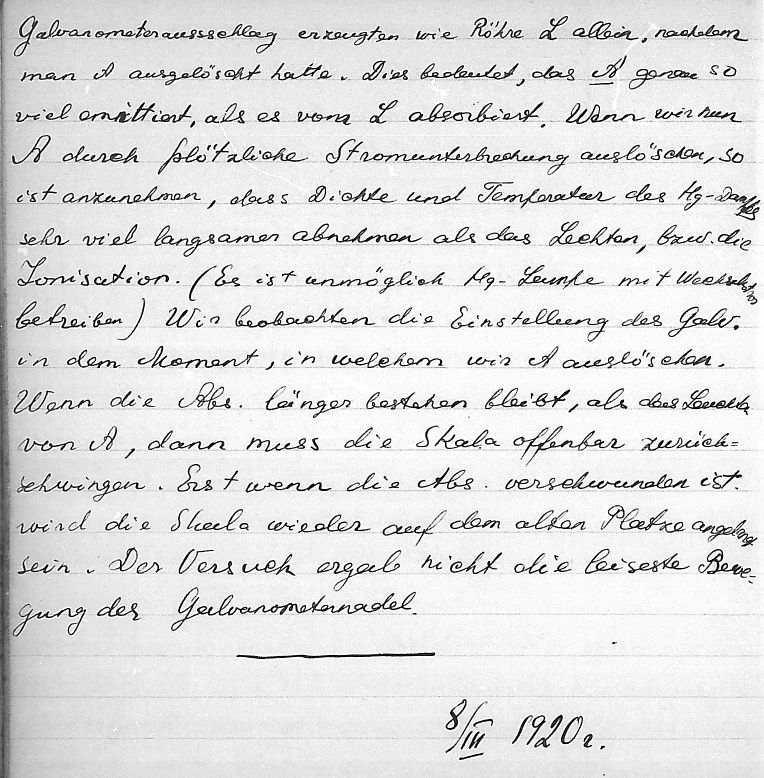 Galvanometeraussschlag erzeugten wie Röhre L allein, nachdem
man A ausgelöscht hatte. Dies bedeutet, das A genau so
viel emittiert, als es vom L absorbiert. Wenn wir nun
A durch plötzliche Stromunterbrechung auslöschen, so
ist anzunehmen, dass Dichte und Temperatur des Hg-Dampfes
sehr viel langsamer abnehmen als das Leuchten, bzw. die
Ionisation. (Es ist unmöglich Hg-Lampe mit Wechselstrom
betreiben) Wir beobachten die Einstellung des Galv.
in dem Moment, in welchem wir A auslöschen.
Wenn die Abs. länger bestehen bleibt, als das Leuchten
von A, dann muss die Skala offenbar zurück=
schwingen. Erst wenn die Abs. verschwunden ist.
wird die Skala wieder auf dem alten Platze angelangt
sein. Der Versuch ergab nicht die leiseste Bewe-
gung der Galvanometernadel.
8/III 1920 г.